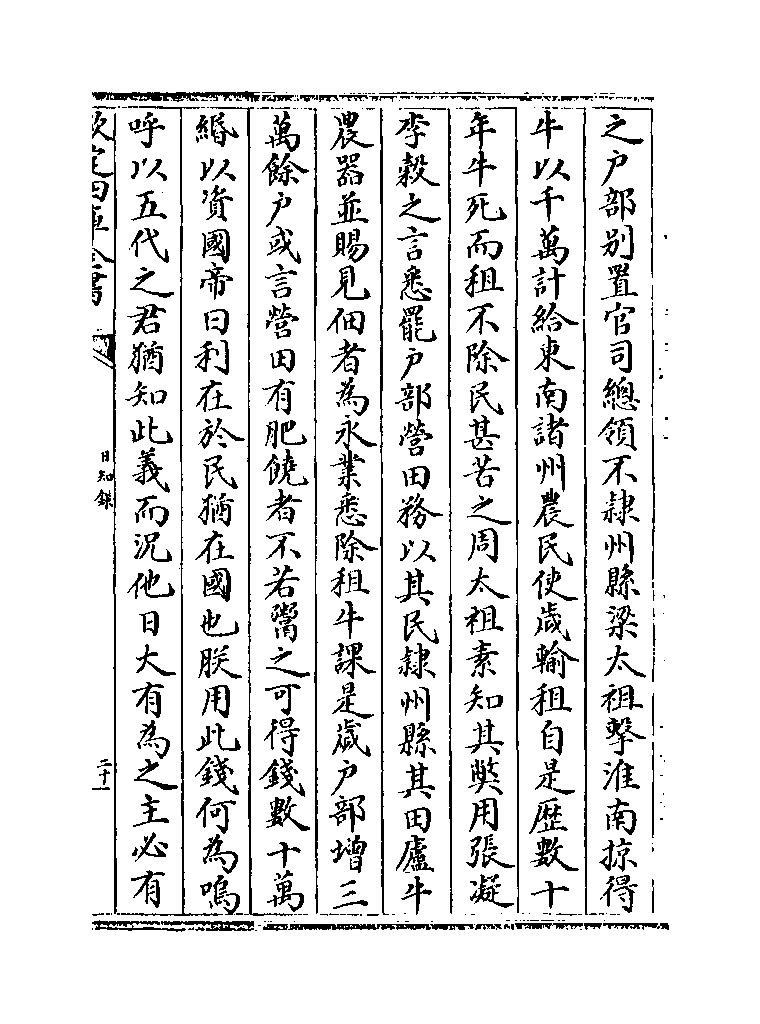 之户部别置官司總領不隷州縣梁太祖擊淮南掠得
牛以千萬計給東南諸州農民使歳輸租自是歴數十
年牛死而租不除民甚苦之周太祖素知其弊用張凝
李榖之言悉罷户部營田務以其民隷州縣其田廬牛
農器並賜見佃者為永業悉除租牛課是歳户部增三
萬餘户或言營田有肥饒者不若鬻之可得錢數十萬
緡以資國帝曰利在於民猶在國也朕用此錢何為嗚
呼以五代之君猶知此義而況他日大有為之主必有
欽定四庫全書
日知録
二十一